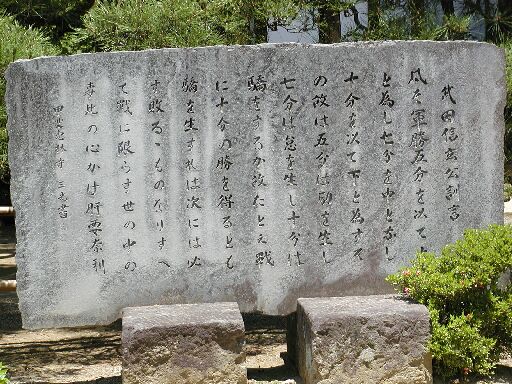 武田信玄公訓言
凡そ軍勝五分を以て上
と為し七分を中となし
十分を以て下と為すそ
の故は五分は励を生し
七分は怠を生し十分は
驕を生するか故たとえ戦
に十分の勝を得るとも
驕を生すれは次には必
す敗るゝものなりすへ
て戦に限らす世の中の
事此の心かけ肝要奈利